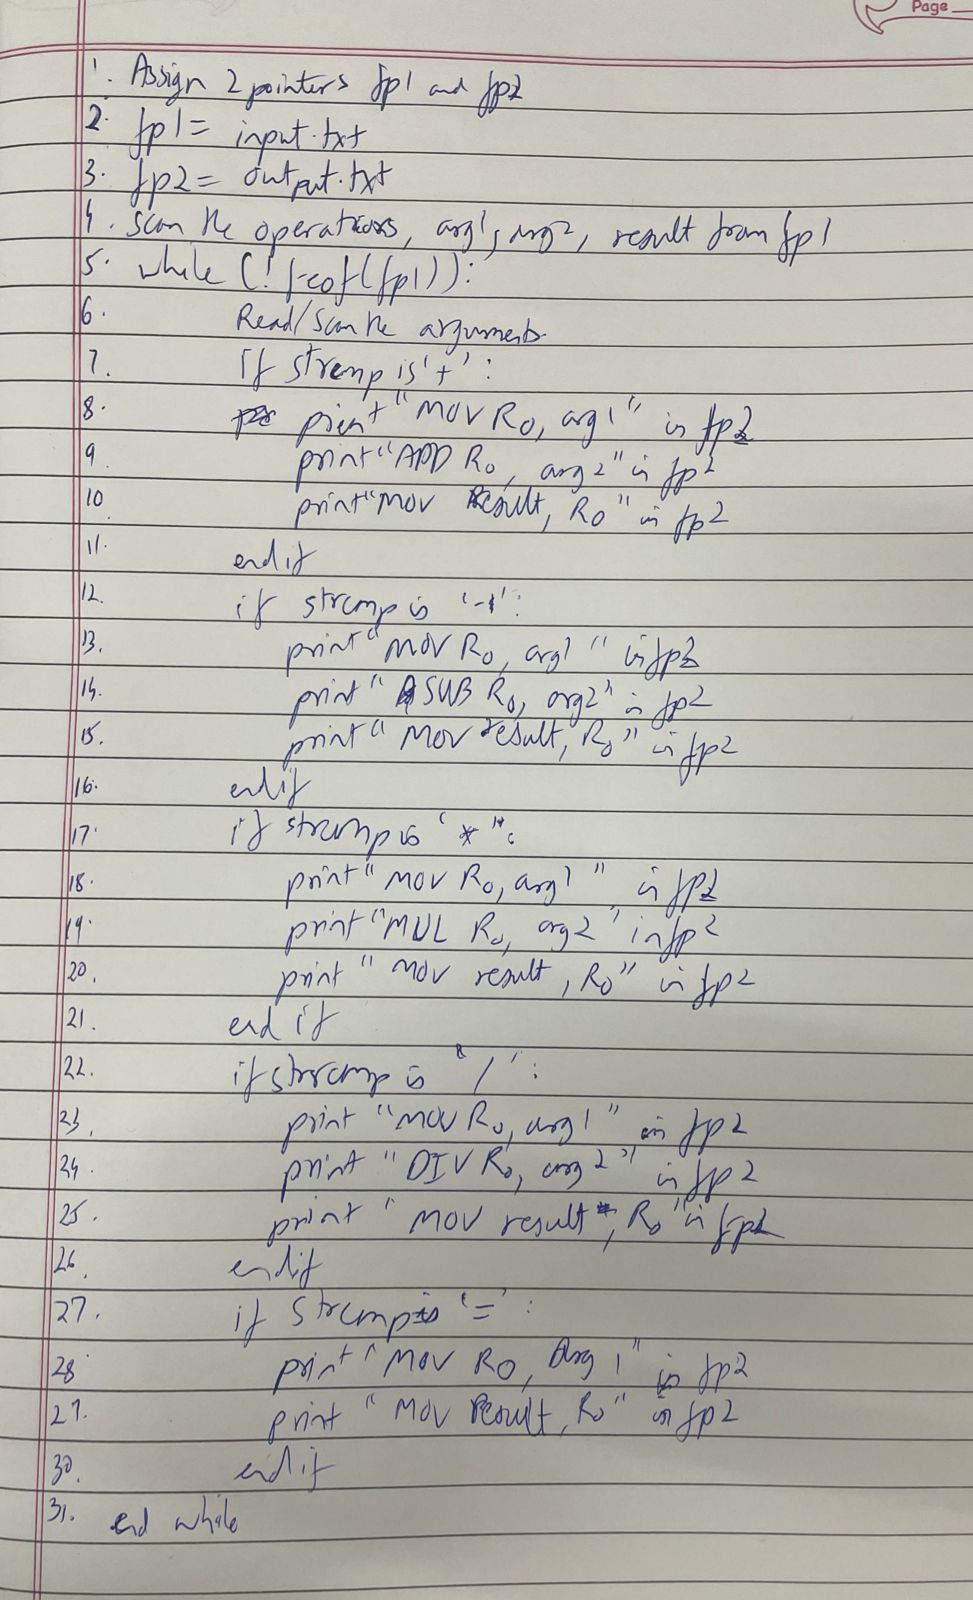 Page
1. Assign 2 pointers fp1 and fp2
2. fp1 = input.txt
3. fp2 = output.txt
4. Scan the operations, arg1, arg2, result from fp1
5. while (! feof(fp1)):
6. Read/Scan the arguments
7. If strcmp is '+' :
8. print "MOV R0, arg1" in fp2
9. print "ADD R0, arg2" in fp2
10 print "MOV Result, R0" in fp2
11. endif
12. if strcmp is '-' :
13. print "MOV R0, arg1" in fp2
14. print "SUB R0, arg2" in fp2
15. print "MOV result, R0" in fp2
16. endif
17. if strcmp is '*' :
18. print "MOV R0, arg1" in fp2
19. print "MUL R0, arg2" in fp2
20. print "MOV result, R0" in fp2
21. end if
22. if strcmp is "/' :
23. print "MOV R0, arg1" in fp2
24. print "DIV R0, arg2" in fp2
25. print "MOV result, R0" in fp2
26. endif
27. if strcmp is '=' :
28 print "MOV R0, Arg1" in fp2
29. print "MOV Result, R0" in fp2
30. endif
31. end while